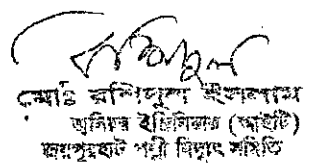 রশিদুল
মোঃ রশিদুল ইসলাম
জুনিয়র ইঞ্জিনিয়ার (আইটি)
জয়পুরহাট পল্লী বিদ্যুৎ সমিতি